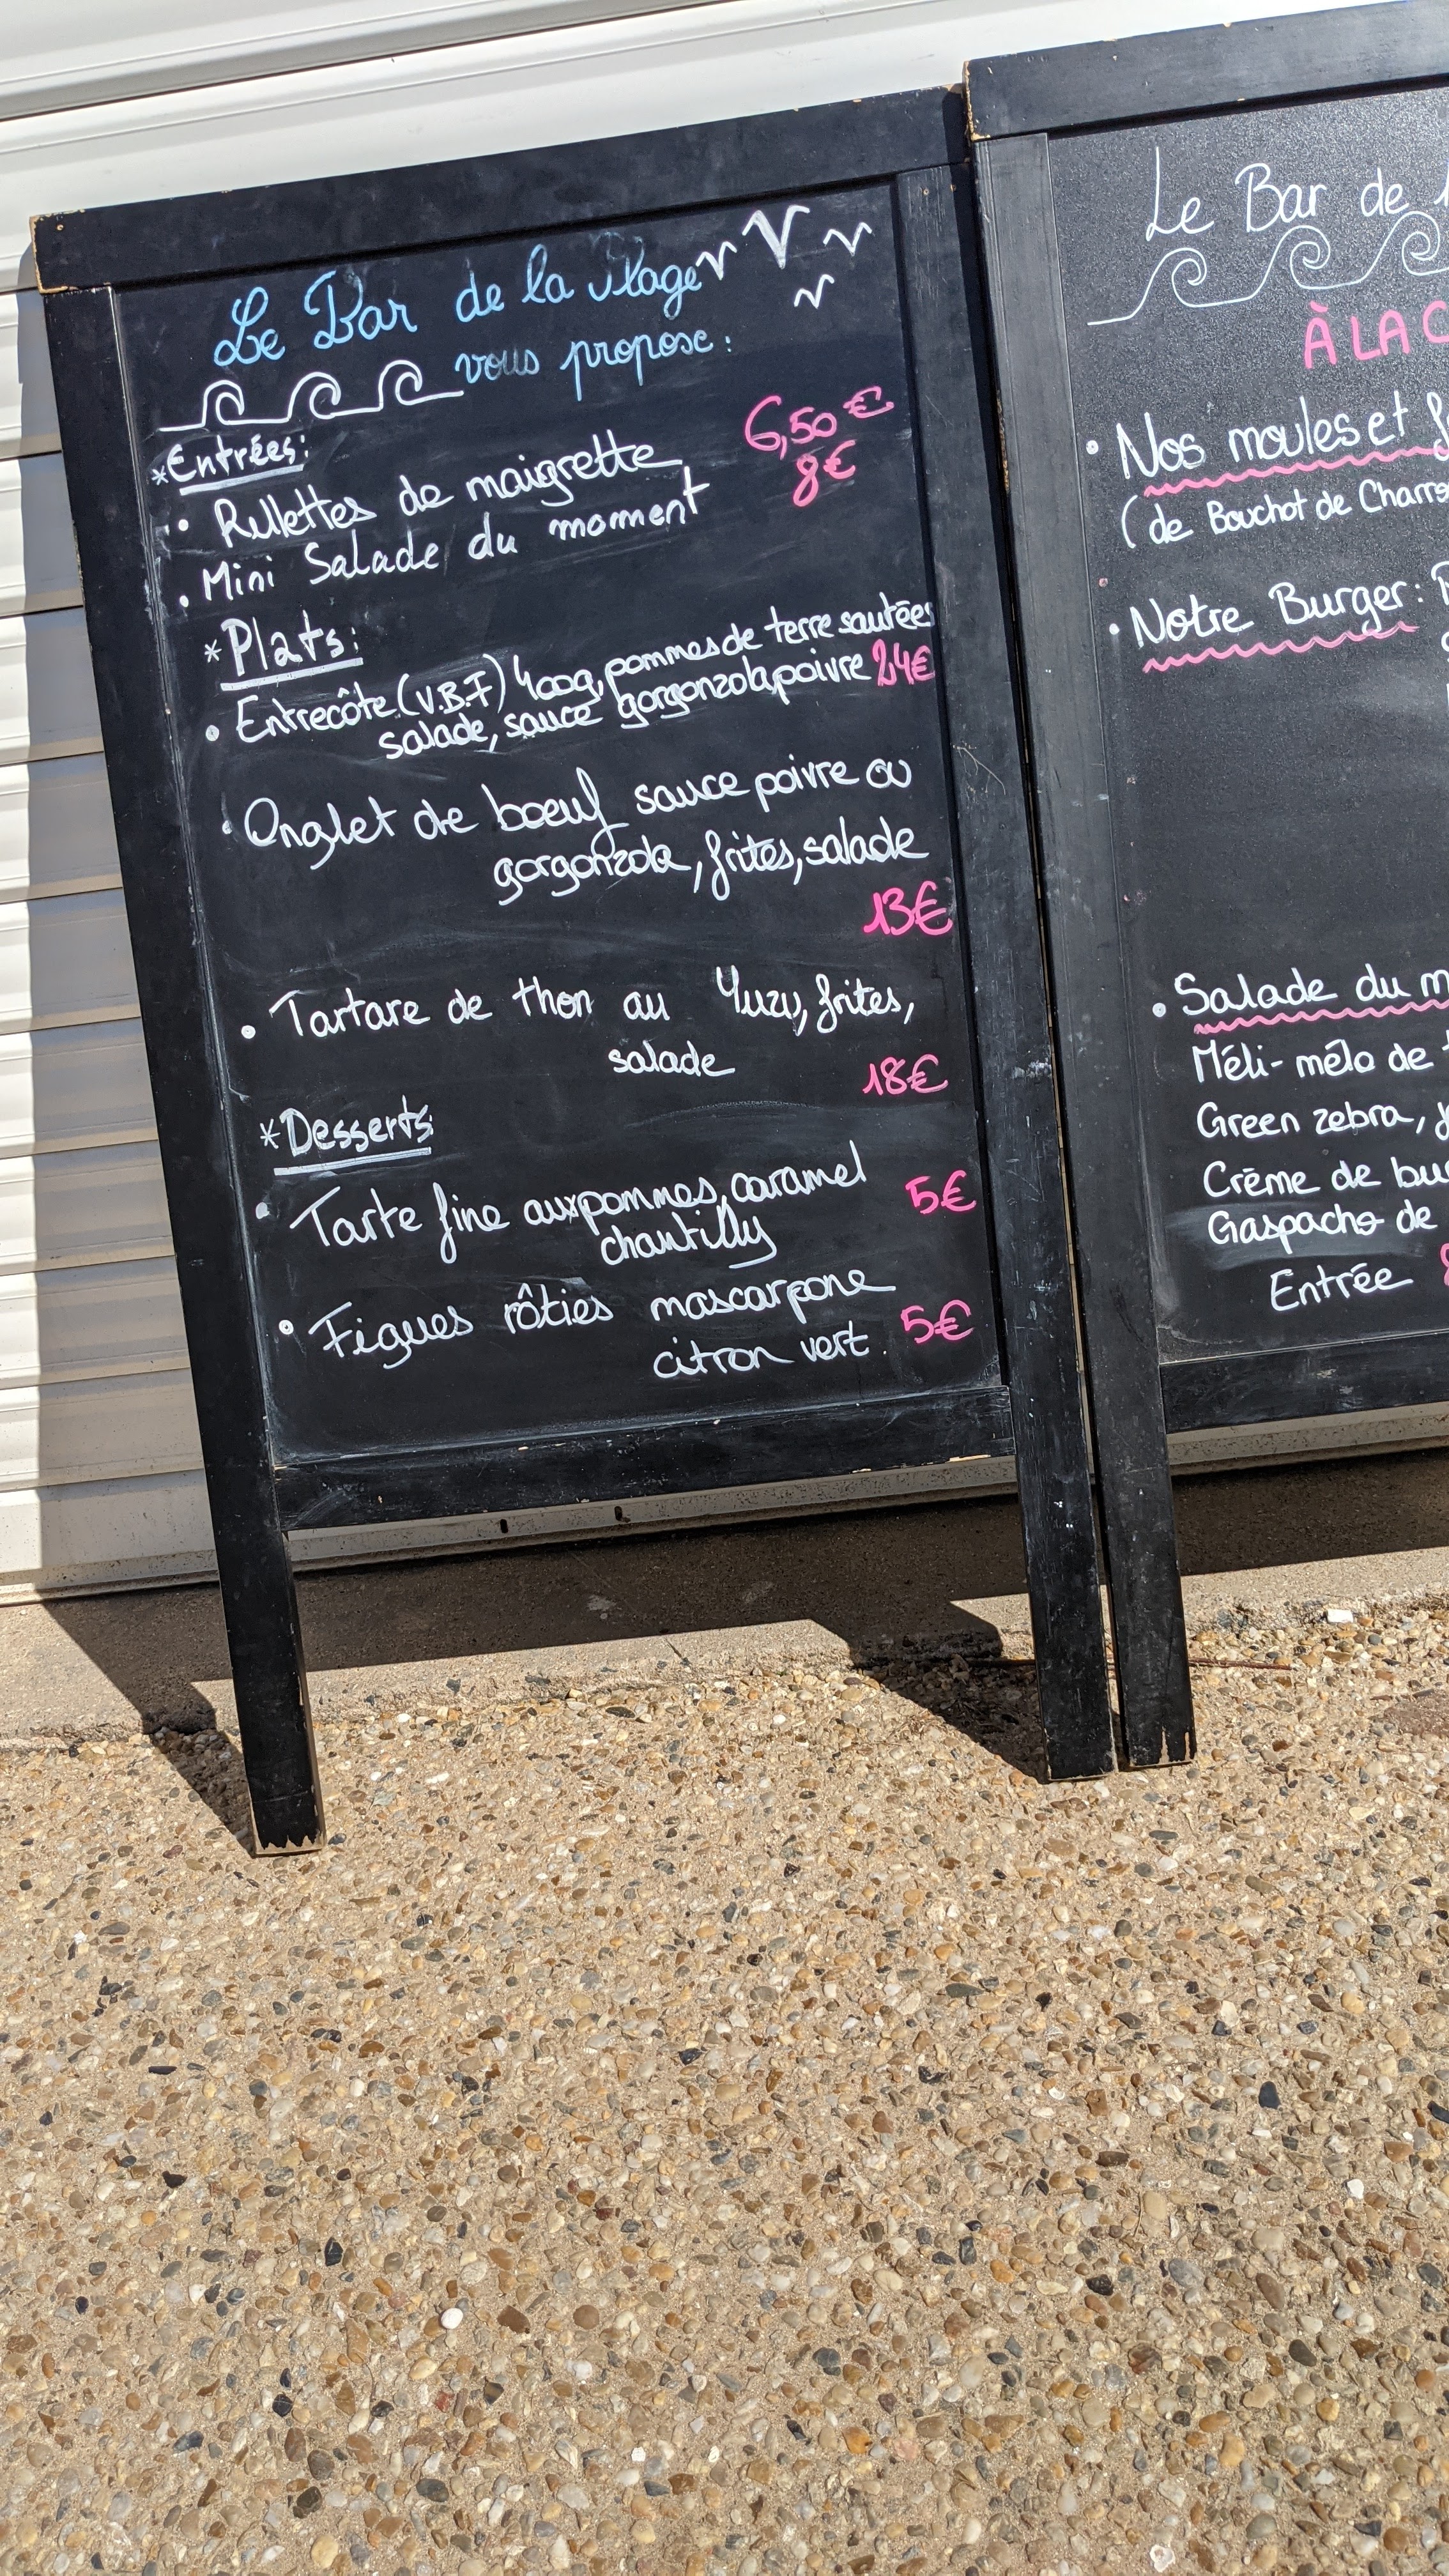 Le Bar de la Plage
vous propose :
* Entrées :
• Rillettes de maigrette 6,50 €
• Mini Salade du moment 8 €
* Plats :
• Entrecôte (V.B.F) 400g, pommes de terre sautées
salade, sauce gorgonzola, poivre 24€
• Onglet de boeuf sauce poivre ou
gorgonzola, frites, salade
13€
• Tartare de thon au Yuzu, frites,
salade
18€
* Desserts
• Tarte fine aux pommes, caramel 5€
chantilly
• Figues rôties mascarpone
citron vert. 5€
Le Bar de
À LA C
• Nos moules et f
(de Bouchot de Charro
• Notre Burger :
• Salade du m
Méli-mélo de
Green zebra,
Crème de bu
Gaspacho de
Entrée